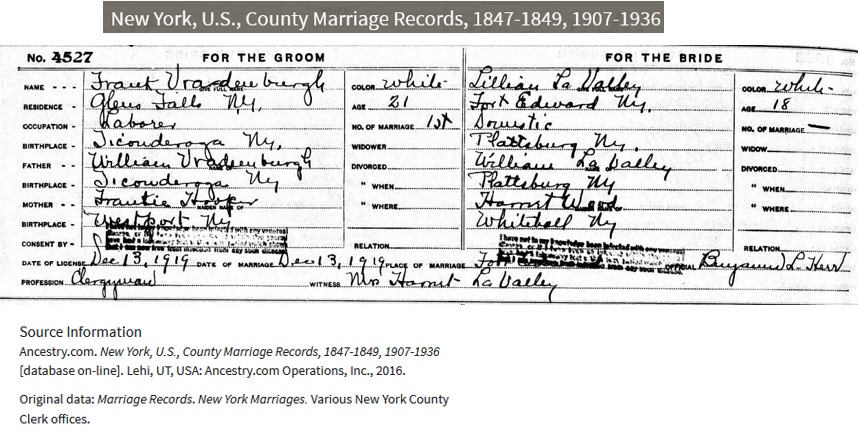 New York, U.S., County Marriage Records, 1847-1849, 1907-1936
No. 4527 FOR THE GROOM FOR THE BRIDE
NAME - - - Frank Vradenburgh COLOR White Lillian La Valley COLOR White
RESIDENCE - Glens Falls Ny. AGE 21 Fort Edward Ny. AGE 18
OCCUPATION - Laborer NO. OF MARRIAGE 1st Domestic NO. OF MARRIAGE —
BIRTHPLACE - Ticonderoga Ny. WIDOWER Plattsburg Ny. WIDOW
FATHER - - William Vradenburgh DIVORCED William La Valley DIVORCED
BIRTHPLACE - Ticonderoga Ny " WHEN Plattsburg Ny " WHEN
MOTHER - - Frankie Hooper " WHERE Harriet " WHERE
BIRTHPLACE - Westport Ny Whitehall Ny
CONSENT BY - RELATION I have not to my knowledge been infected with any venereal RELATION
DATE OF LICENSE Dec 13, 1919 DATE OF MARRIAGE Dec 13, 1919 PLACE OF MARRIAGE Fort OFFICIAL L.
PROFESSION Clergyman WITNESS Mrs Harriet La Valley
Source Information
Ancestry.com. New York, U.S., County Marriage Records, 1847-1849, 1907-1936
[database on-line]. Lehi, UT, USA: Ancestry.com Operations, Inc., 2016.
Original data: Marriage Records. New York Marriages. Various New York County
Clerk offices.